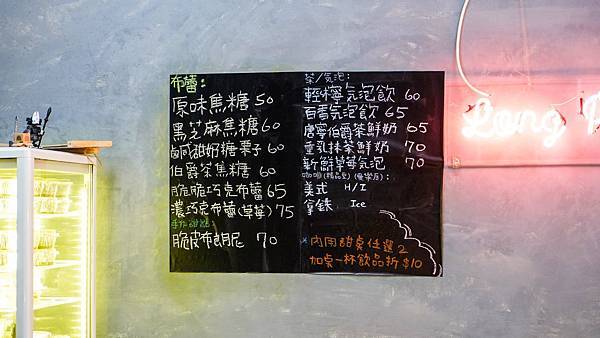 布蕾：
原味焦糖 50
黑芝麻焦糖 60
鹹甜奶糖栗子 60
伯爵茶焦糖 60
脆脆巧克布蕾 65
濃巧克布蕾(草莓) 75
手作甜點
脆皮布朗尼 70
茶/気泡：
輕檸気泡飲 60
百香気泡飲 65
唐寧伯爵茶鮮奶 65
重乳抹茶鮮奶 70
新鮮草莓気泡 70
咖啡(精品豆)
美式 H/I
拿鉄 Ice
*內用甜桌任選2
加桌一杯飲品折$10
Long